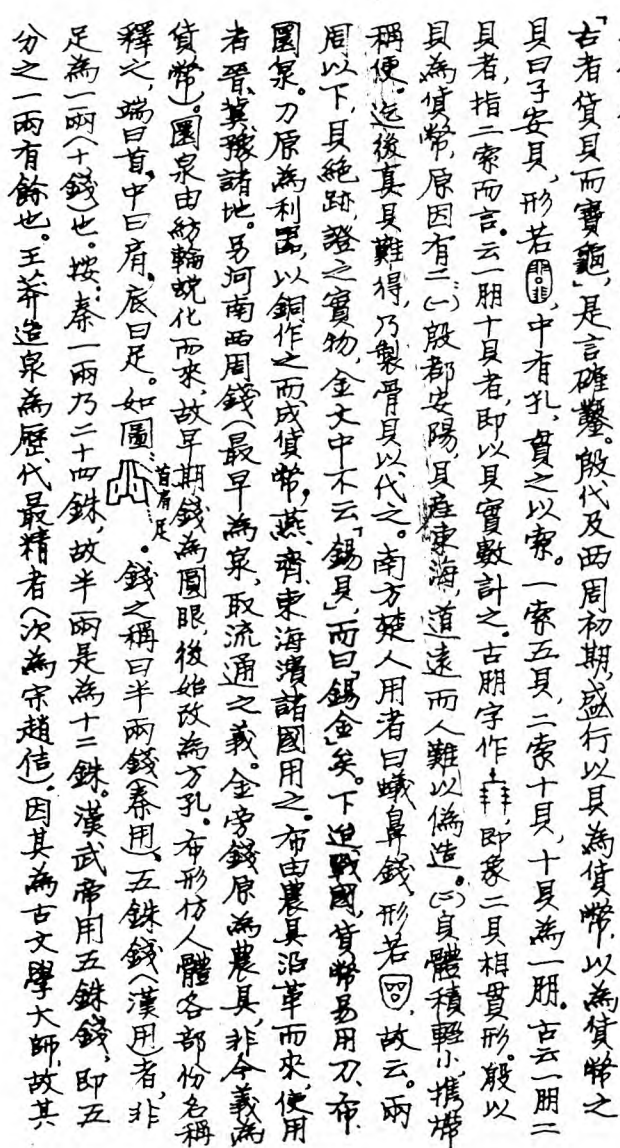 「古者貨貝而寶龜」,是言確鑿。殷代及西周初期,盛行以貝為貨幣,以為貨幣之
貝曰子安貝,形若,中有孔,貫之以索。一索五貝,二索十貝,十貝為一朋。古云一朋二
貝者,指二索而言。云一朋十貝者,即以貝實數計之。古朋字作,即象二貝相貫形。殷以
貝為貨幣,原因有二:(一)殷都安陽,貝產東海,道遠而人難以偽造。(二)身體積輕小,攜帶
稱便。迄後真貝難得,乃製骨貝以代之。南方楚人用者曰蟻鼻錢,形若,故云。兩
周以下,貝絕跡,證之實物,金文中不云「錫貝」,而曰「錫金」矣。下迨戰國,貨幣易用刀、布、
圜泉。刀原為利器,以銅作之而成貨幣,燕、齊、東海濱諸國用之。布由農具沿革而來,使用
者晉、冀、豫諸地。另河南西周錢(最早為泉,取流通之義。金旁錢原為農具,非今義為
貨幣)。圜泉由紡輪蛻化而來,故早期錢為圓眼,後始改為方孔。布形仿人體各部份名稱
釋之,端曰首,中曰肩,底曰足。如圖:首肩足。錢之稱曰半兩錢(秦用)、五銖錢(漢用)者,非
足為一兩(十錢)也。按:秦一兩乃二十四銖,故半兩是為十二銖。漢武帝用五銖錢,即五
分之一兩有餘也。王莽造泉為歷代最精者(次為宋趙佶)。因其為古文學大師,故其